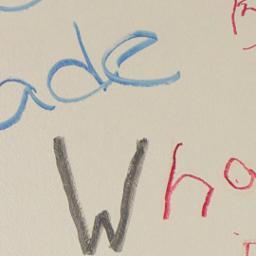 ade
Who